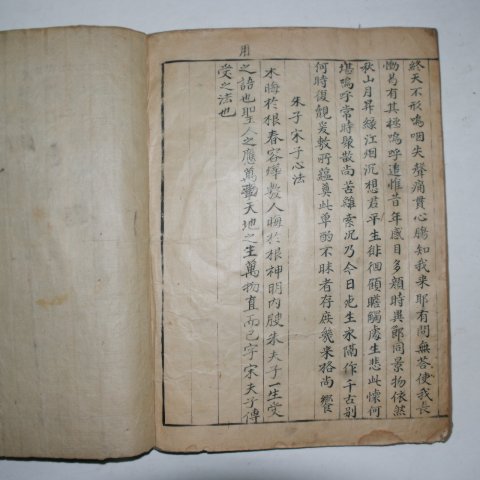 用
終天不形嗚咽失聲痛貫心膓知我來耶有問無荅使我長
慟曷有其極嗚呼追惟昔年感目多顔時異鄭同景物依然
秋山月昇綠江烟沉想君平生徘徊顧瞻觸處生悲此懷何
堪嗚呼常時聚散尚苦離索沉乃今日死生永隔作千古別
何時復覩爰敕所蘊奠此單酌不昧者存庶幾來格尚 饗
朱子宋子心法
木晦於根春容燁敷人晦於根神明內腴朱夫子一生受
之語也聖人之應萬物天地之主萬物直而已字宋夫子傳
受之法也